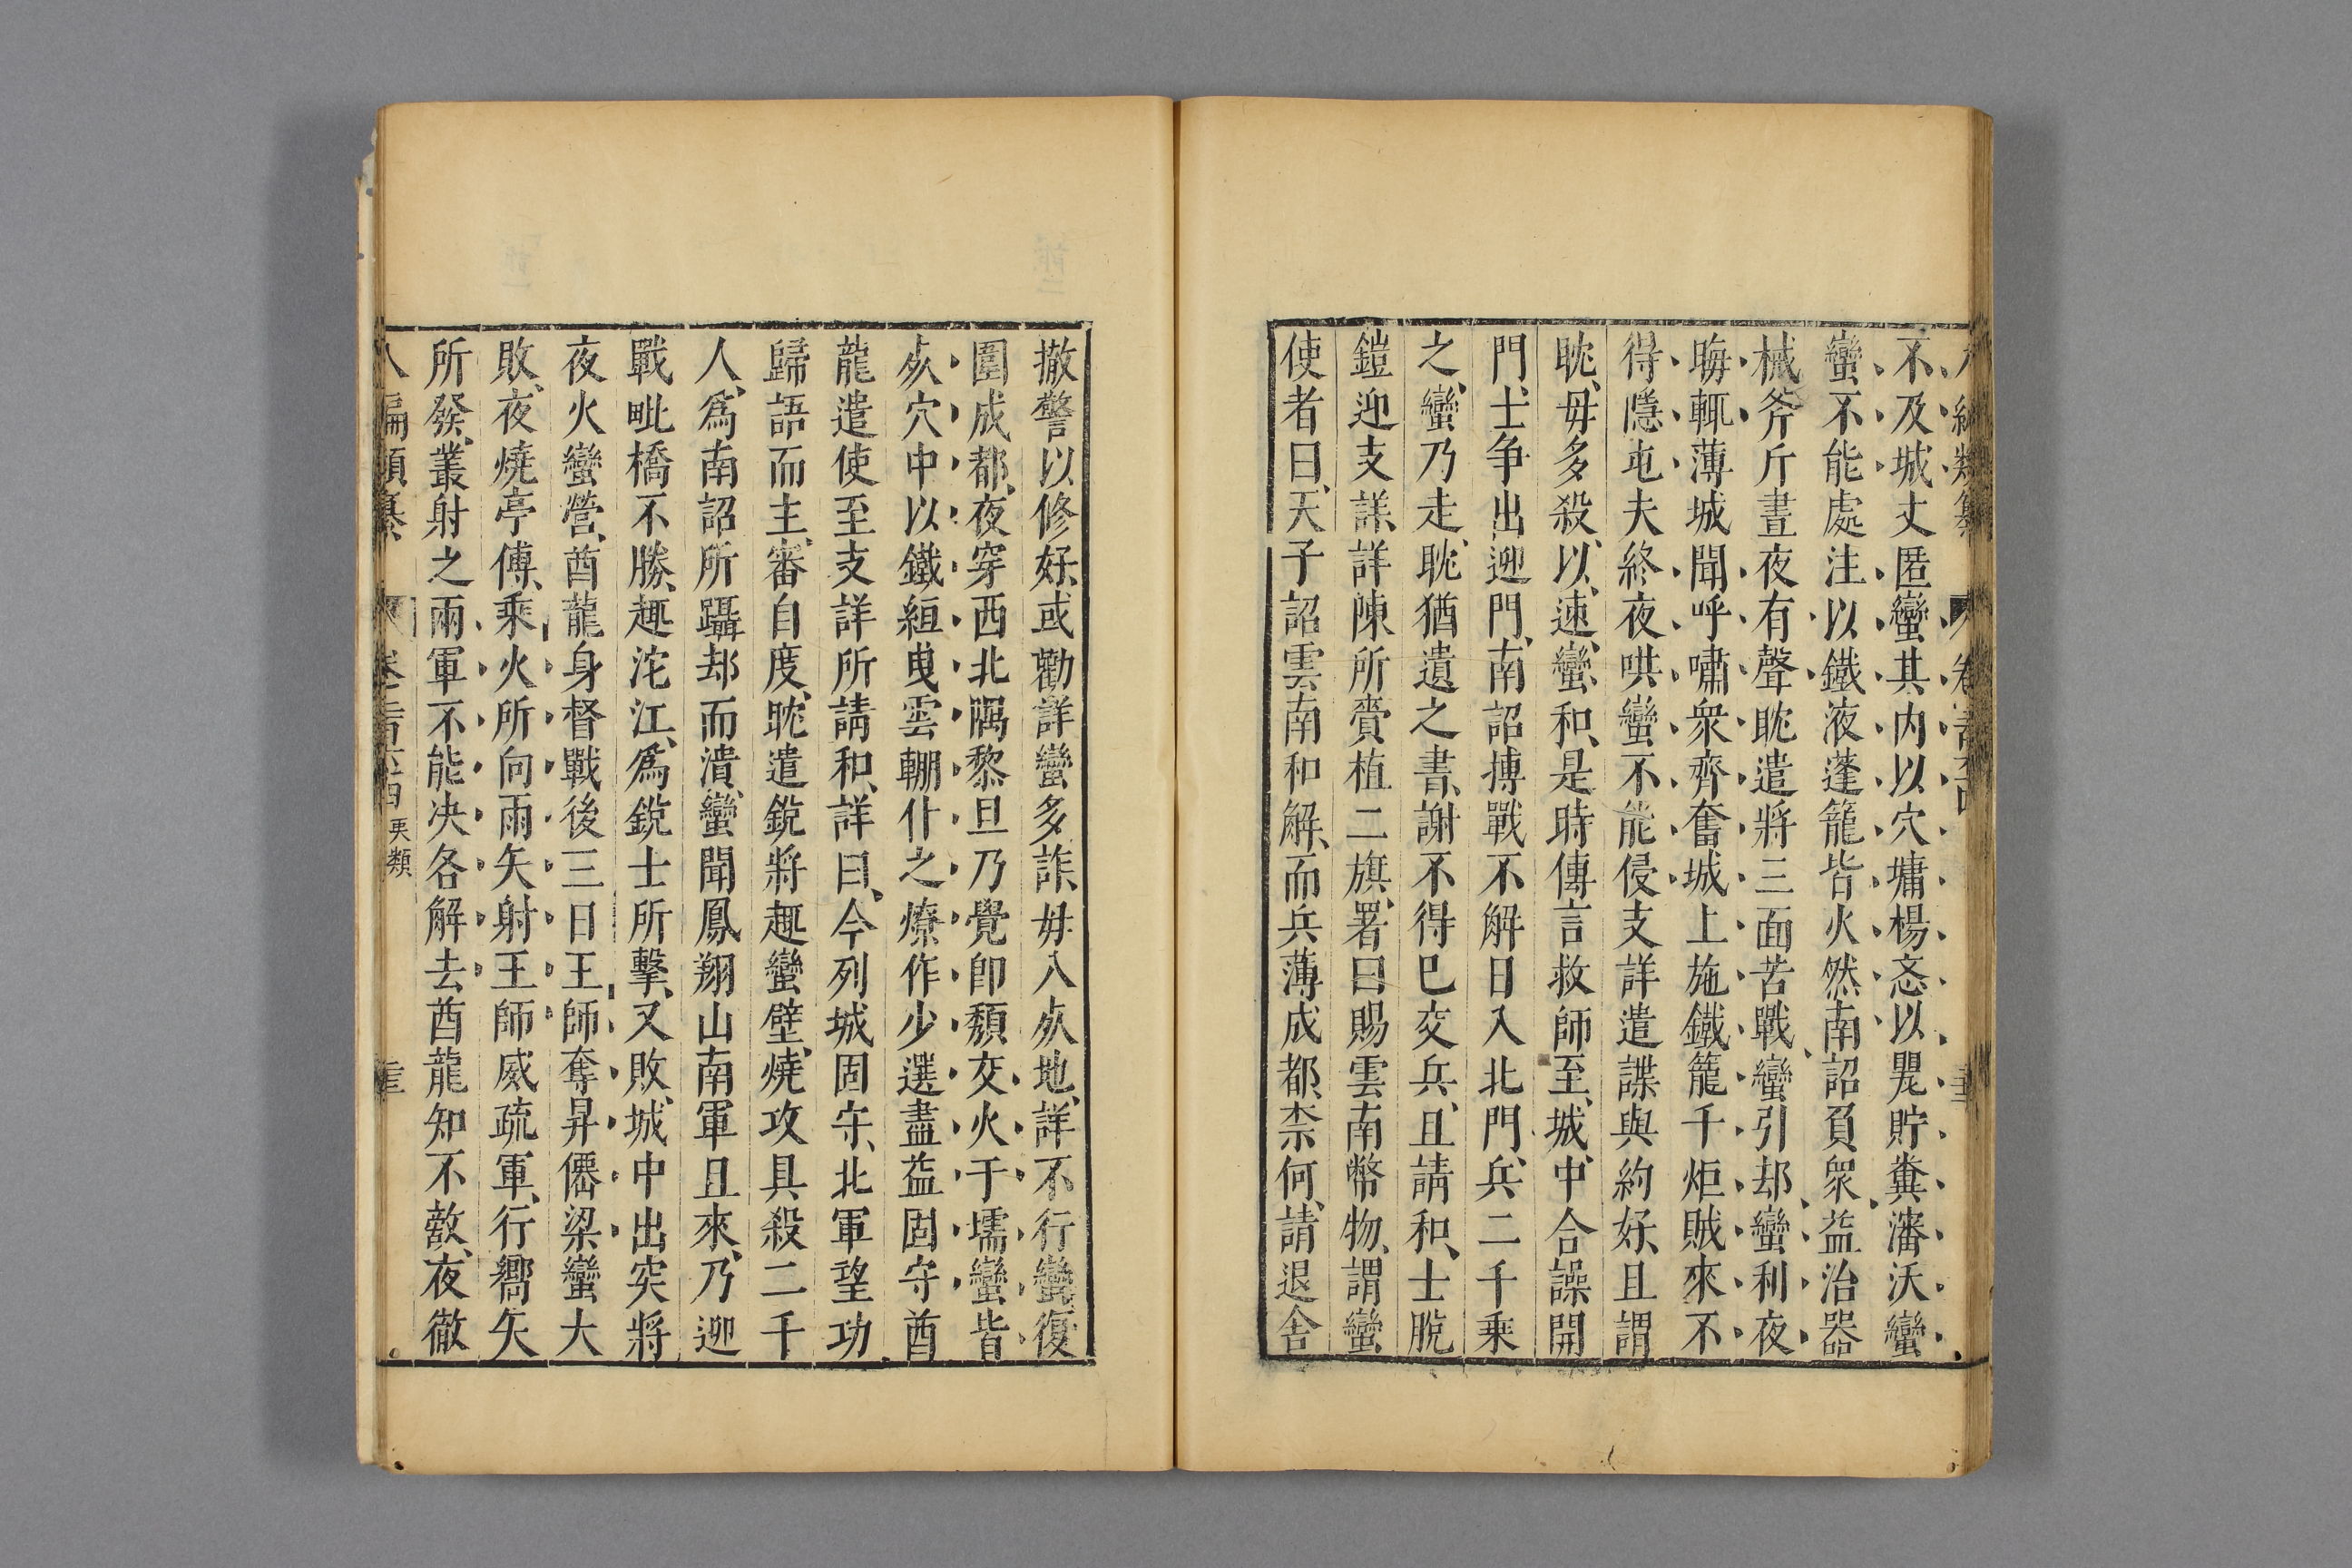 不及城丈匿蠻其内以穴墉楊忞以甖貯糞瀋沃蠻
蠻不能處注以鐵液蓬籠皆火然南詔負衆益治器
械斧斤晝夜有聲眈遣將三面苦戰蠻引却蠻利夜
晦輒薄城聞呼嘯衆齊奮城上施鐵籠千炬賊來不
得隱屯夫終夜哄蠻不能侵支詳遣諜與約好且謂
眈毋多殺以速蠻和是時傳言救師至城中合譟開
門士争出迎門南詔搏戰不解日入北門兵二千乘
之蠻乃走眈猶遺之書謝不得已交兵且請和士脫
鎧迎支詳詳陳所賫植二旗署曰賜雲南幣物謂蠻
使者曰天子詔雲南和解而兵薄成都柰何請退舍
撤警以修好或勸詳蠻多詐毋入死地詳不行蠻復
圍成都夜穿西北隅黎旦乃覺卽頹交火于壖蠻皆
死穴中以鐵絙曳雲輣仆之燎作少選盡益固守酋
龍遣使至支詳所請和詳曰今列城固守北軍望功
歸語而主審自度眈遣銳將趣蠻壁燒攻具殺二千
人爲南詔所躡却而潰蠻聞鳳翔山南軍且來乃迎
戰毗橋不勝趣沱江爲銳士所擊又敗城中出突將
夜火蠻營酋龍身督戰後三日王師奪昇僊梁蠻大
敗夜燒亭傳乘火所向雨矢射王師威疏軍行嚮矢
所發叢射之兩軍不能决各解去酋龍知不敵夜徹
八編類纂 卷 夷類